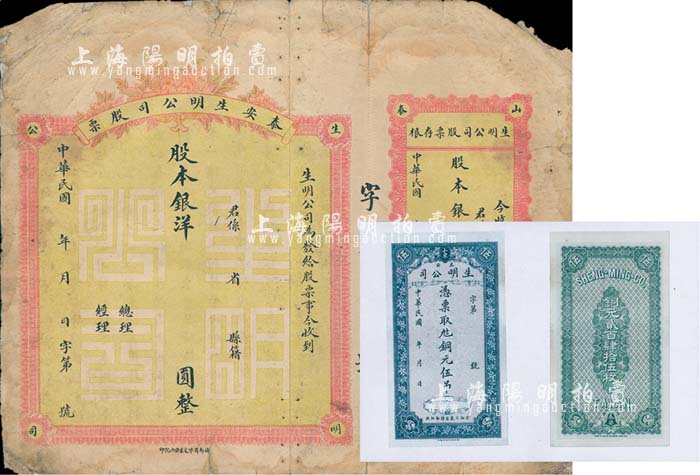 上海陽明拍賣
www.yangmingauction.com
泰安生明公司股票
生
明
公
司
生明公司為發給股票事今收到
君係 省 縣籍
股本銀洋 圓整
總理
經理
中華民國 年 月 日字第 號
字
山
泰
生明公司股票存根
今收
君
股本銀
中華民國
伍
伍
生明公司
字第 號
憑票取兌銅元伍吊
中華民國 年 月 日
伍
伍
SHENG-MING-CO
銅元貳百肆拾伍枚
上海陽明拍賣
www.yangmingauction.com
上海陽明拍賣
www.yangmingauction.com